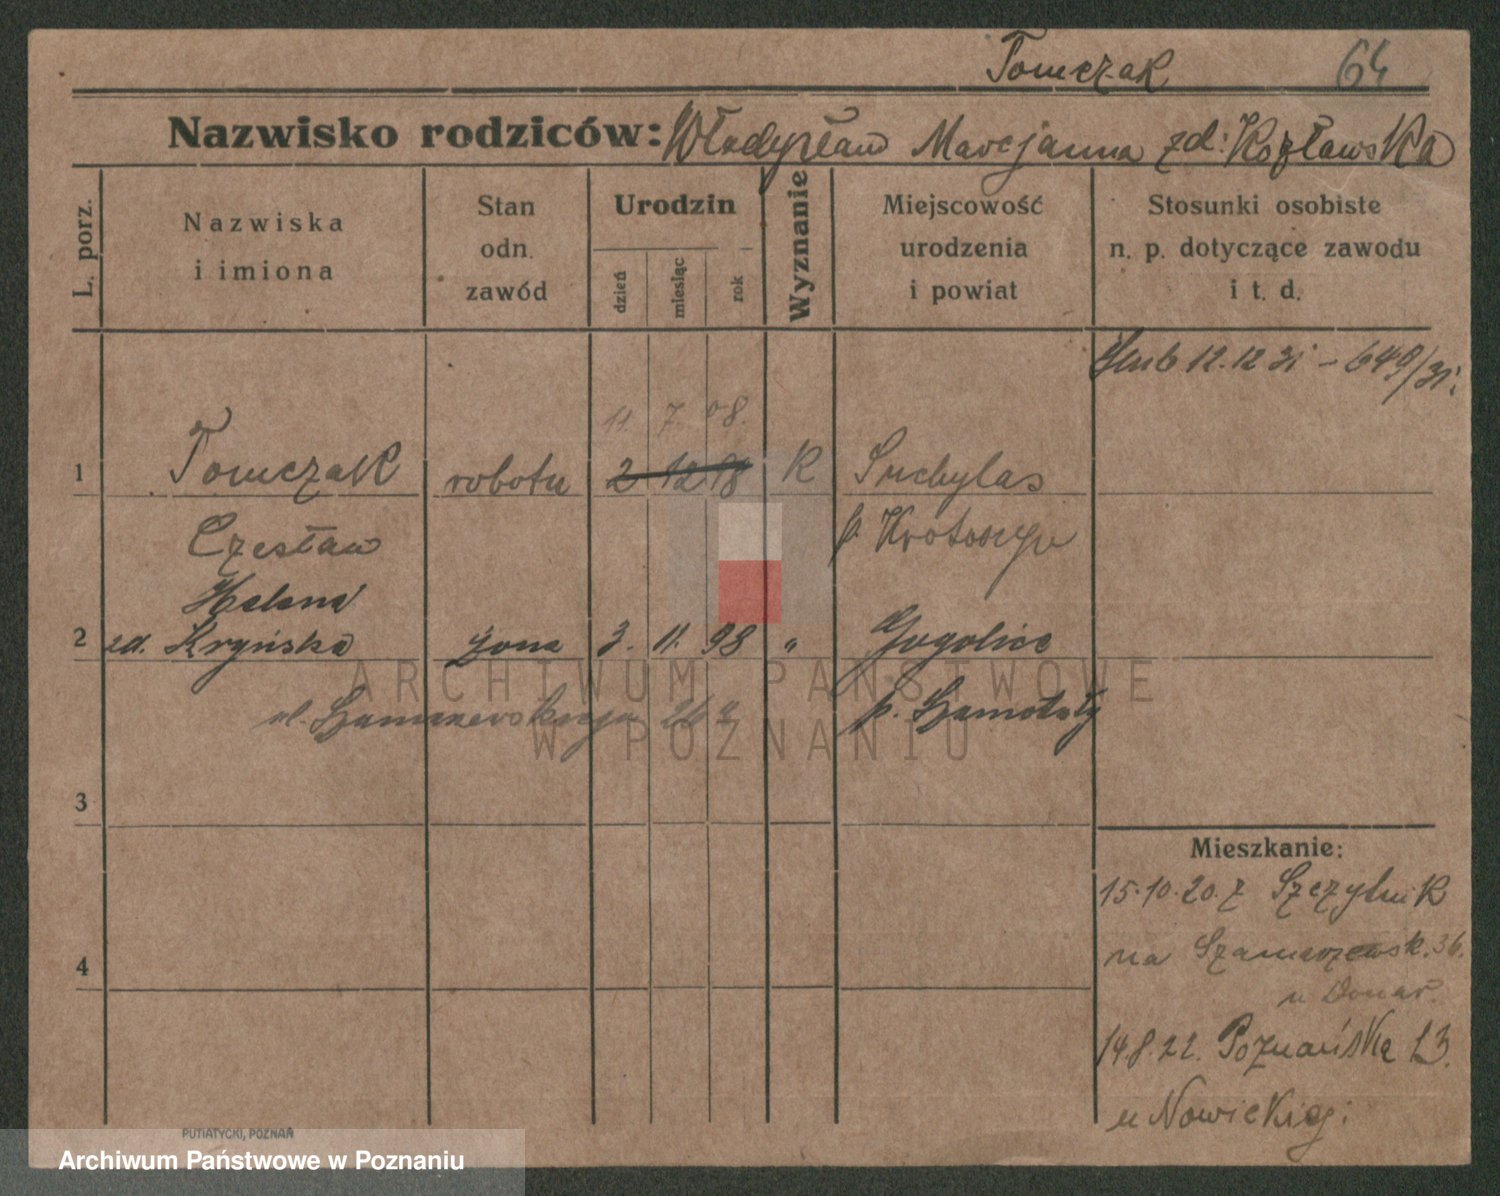 Tomczak 64
Nazwisko rodziców: Władysław Marcjanna zd: Kozławska
L. porz.
Nazwiska
i imiona
Stan
odn.
zawód
Urodzin
dzień
miesiąc
rok
Wyznanie
Miejscowość
urodzenia
i powiat
Stosunki osobiste
n. p. dotyczące zawodu
i t. d.
Ślub 12.12 31 - 649/31.
11. 7. 08.
1 Tomczak robotn 2 12 98 K Suchylas
Czesław p. Krotoszyn
Helena
2 zd. Kryńska żona 3. 11. 98 " Gogolice
ul. 26 p. Szamotuły
3
4
Mieszkanie:
15.10.20. z Szczytnik
na Szamarzewsk. 36.
u Donar.
14.8.22. Poznańska 13.
u Nowickiej:
PUTIATYCKI, POZNAŃ
ARCHIWUM PAŃSTWOWE
W POZNANIU
Archiwum Państwowe w Poznaniu